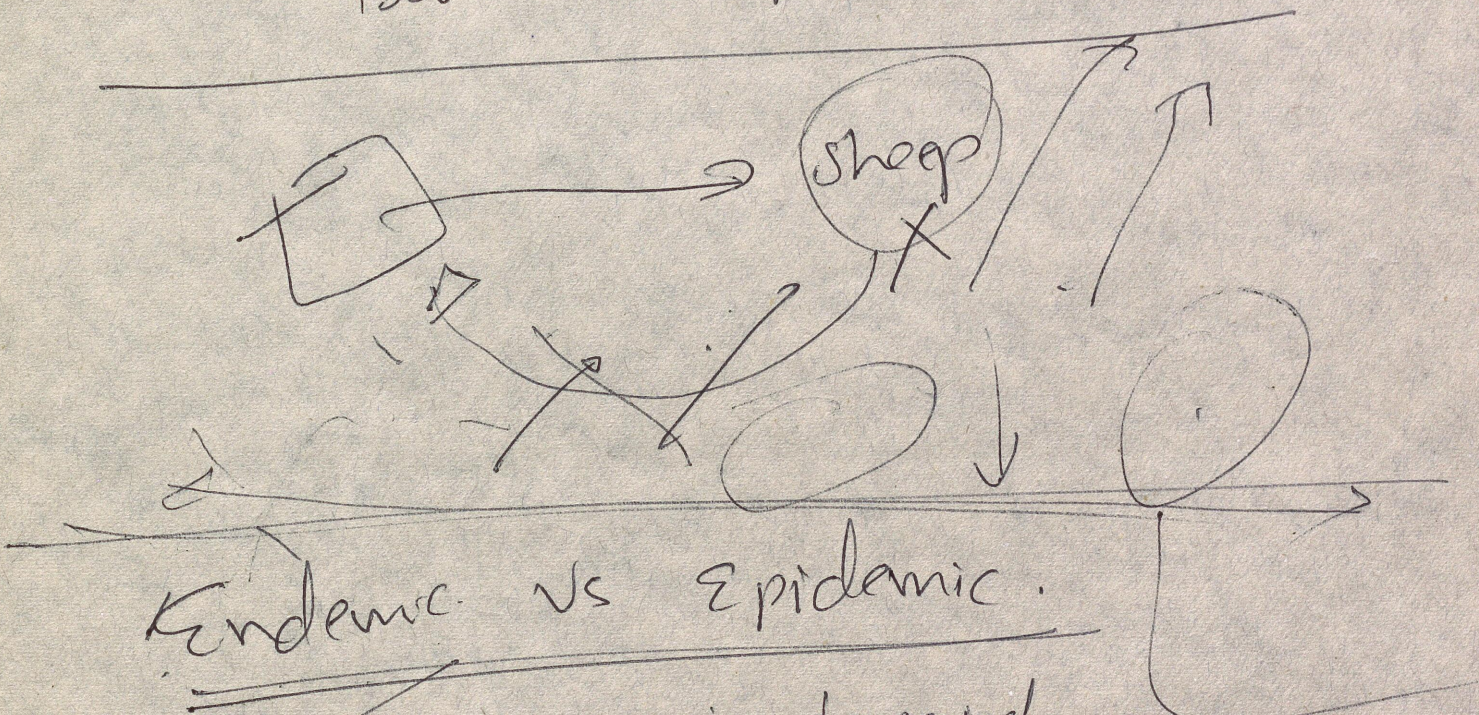 sheep
Endemic vs Epidemic.